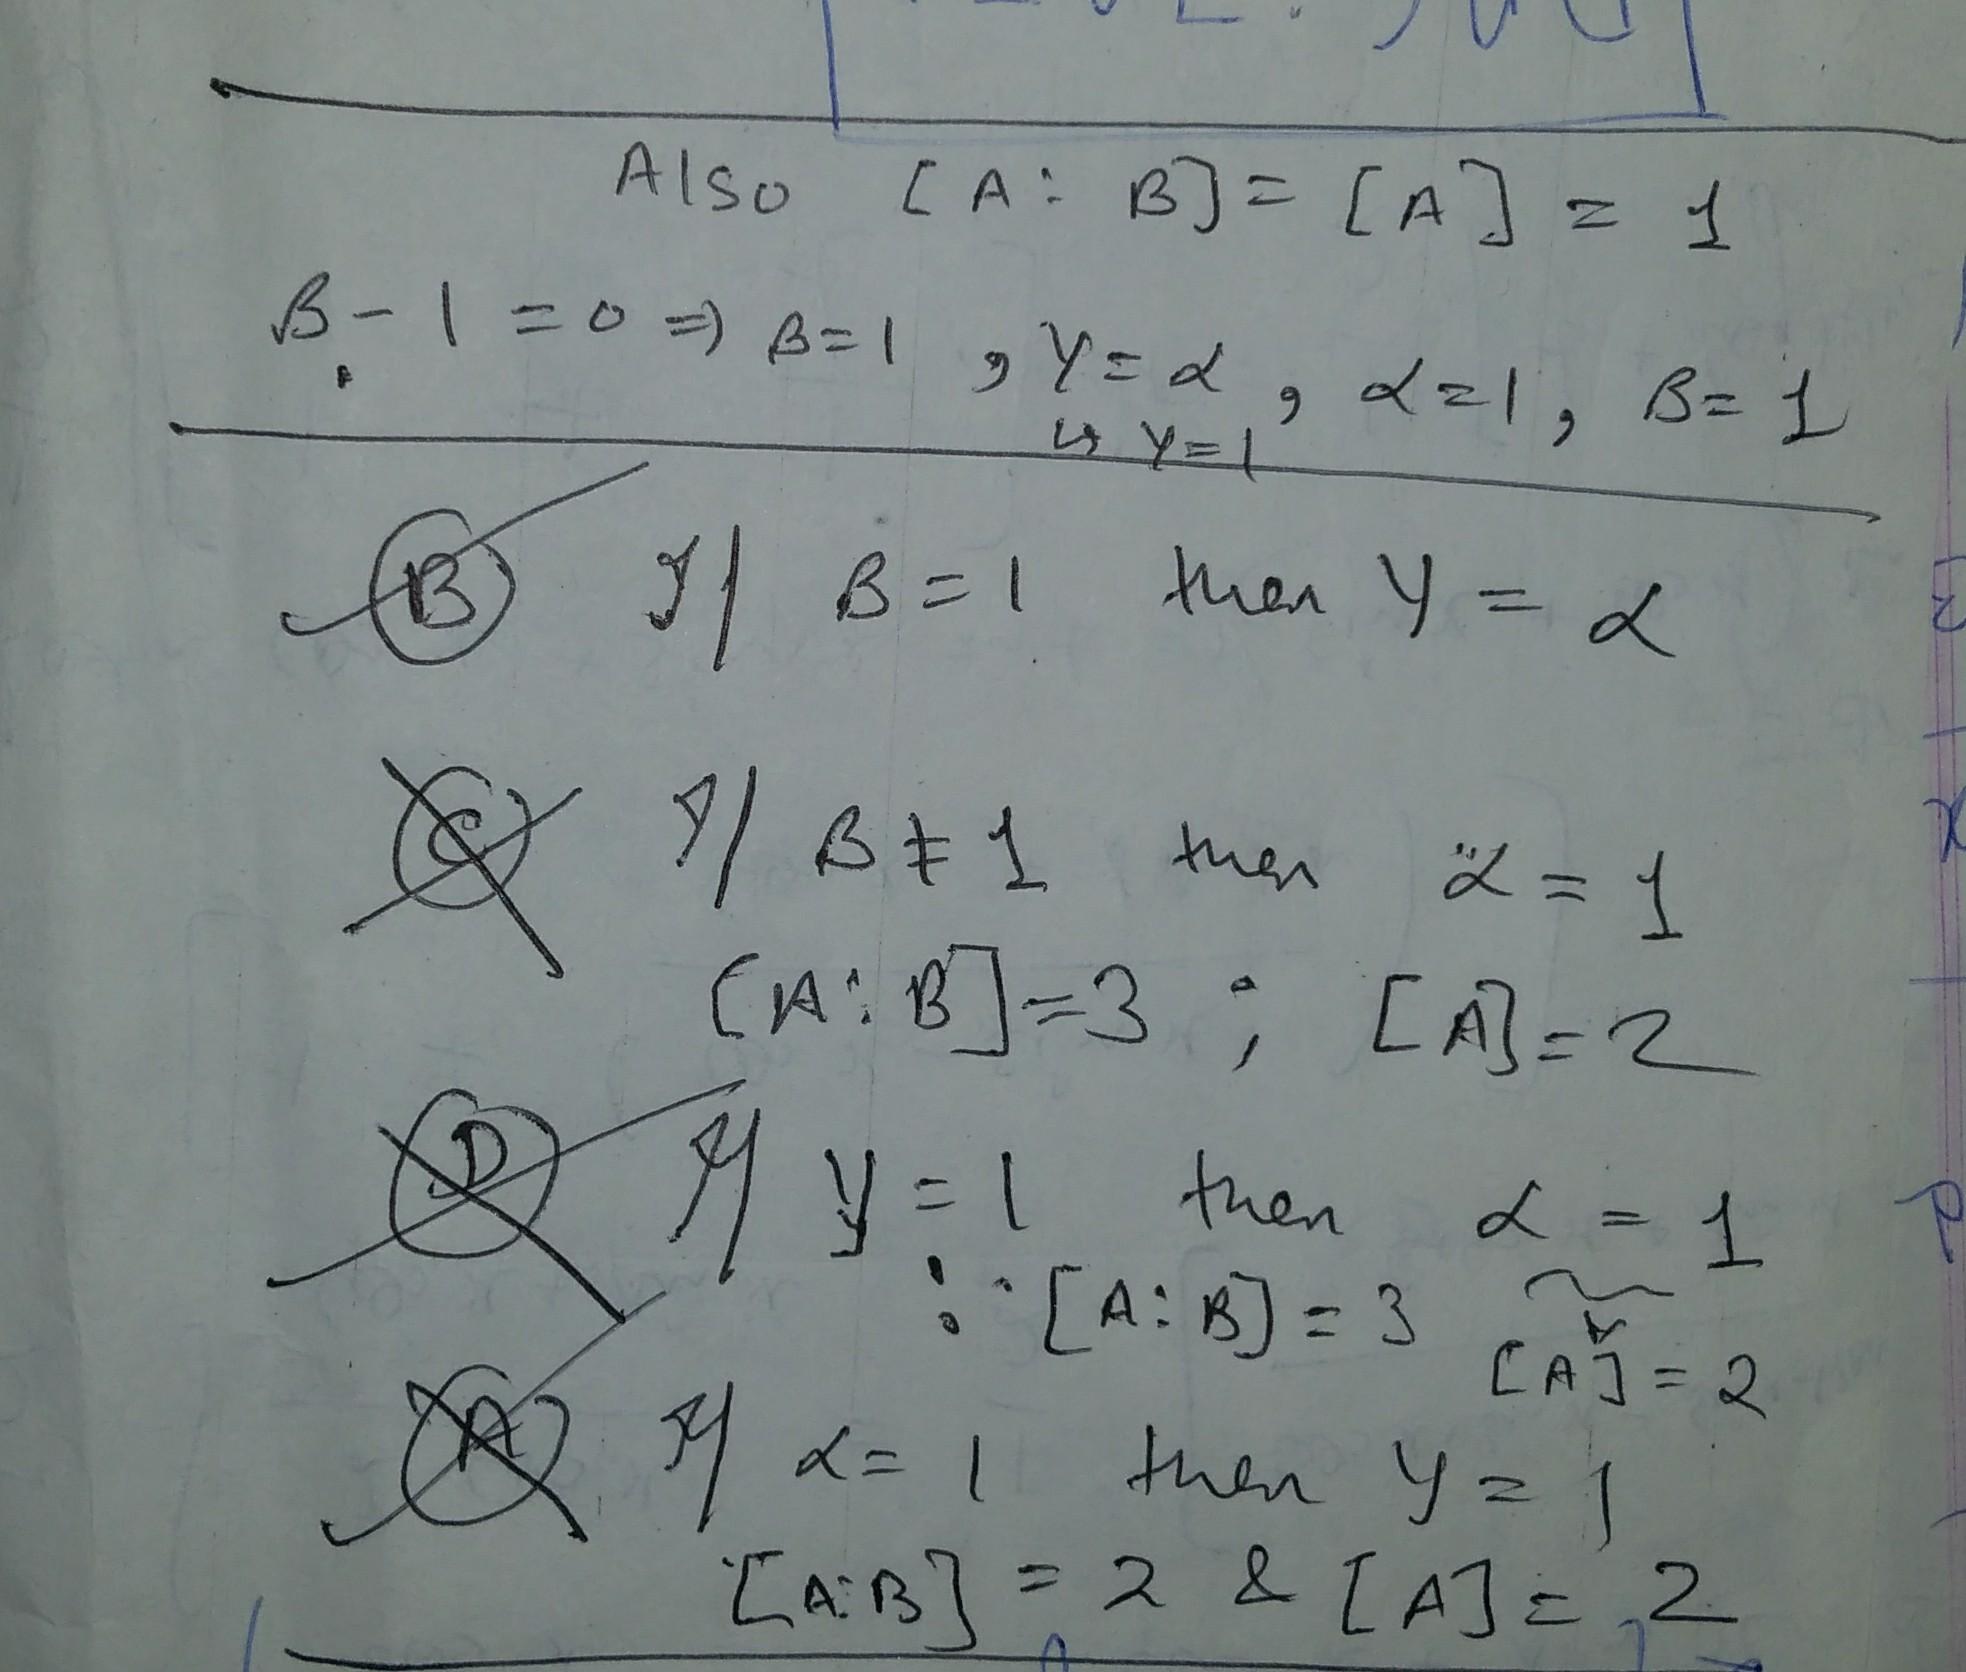 Also [A : B] = [A] = 1
B - 1 = 0 ⇒ B = 1 , Y = α , α = 1 , B = 1
↳ Y = 1
B If B = 1 then Y = α
C If B ≠ 1 then α = 1
[A : B] = 3 ; [A] = 2
D If y = 1 then α = 1
[A : B] = 3
[A] = 2
A If α = 1 then Y = 1
[A : B] = 2 & [A] = 2